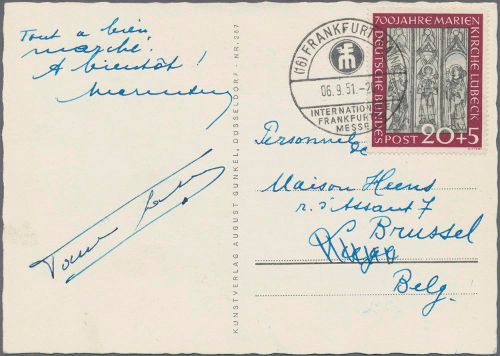 Tout a bien
marché.
A bientôt!
KUNSTVERLAG AUGUST GUNKEL, DÜSSELDORF · NR. 267
(16) FRANKFURT
06.9.51.-2
INTERNATION
FRANKFUR
MESSE
700 JAHRE MARIEN
KIRCHE LÜBECK
DEUTSCHE BUNDES
POST 20+5
Personnelle
Maison Heens
r. d'Assaut 7
Brussel
Belg.